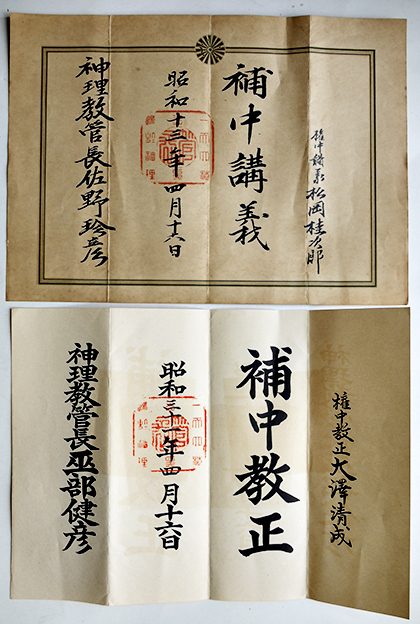 権中講義 松岡桂次郎
補中講義
昭和十三年四月十六日
神理教管長佐野珍彦
権中教正大澤清成
補中教正
昭和三十一年四月十六日
神理教管長巫部健彦